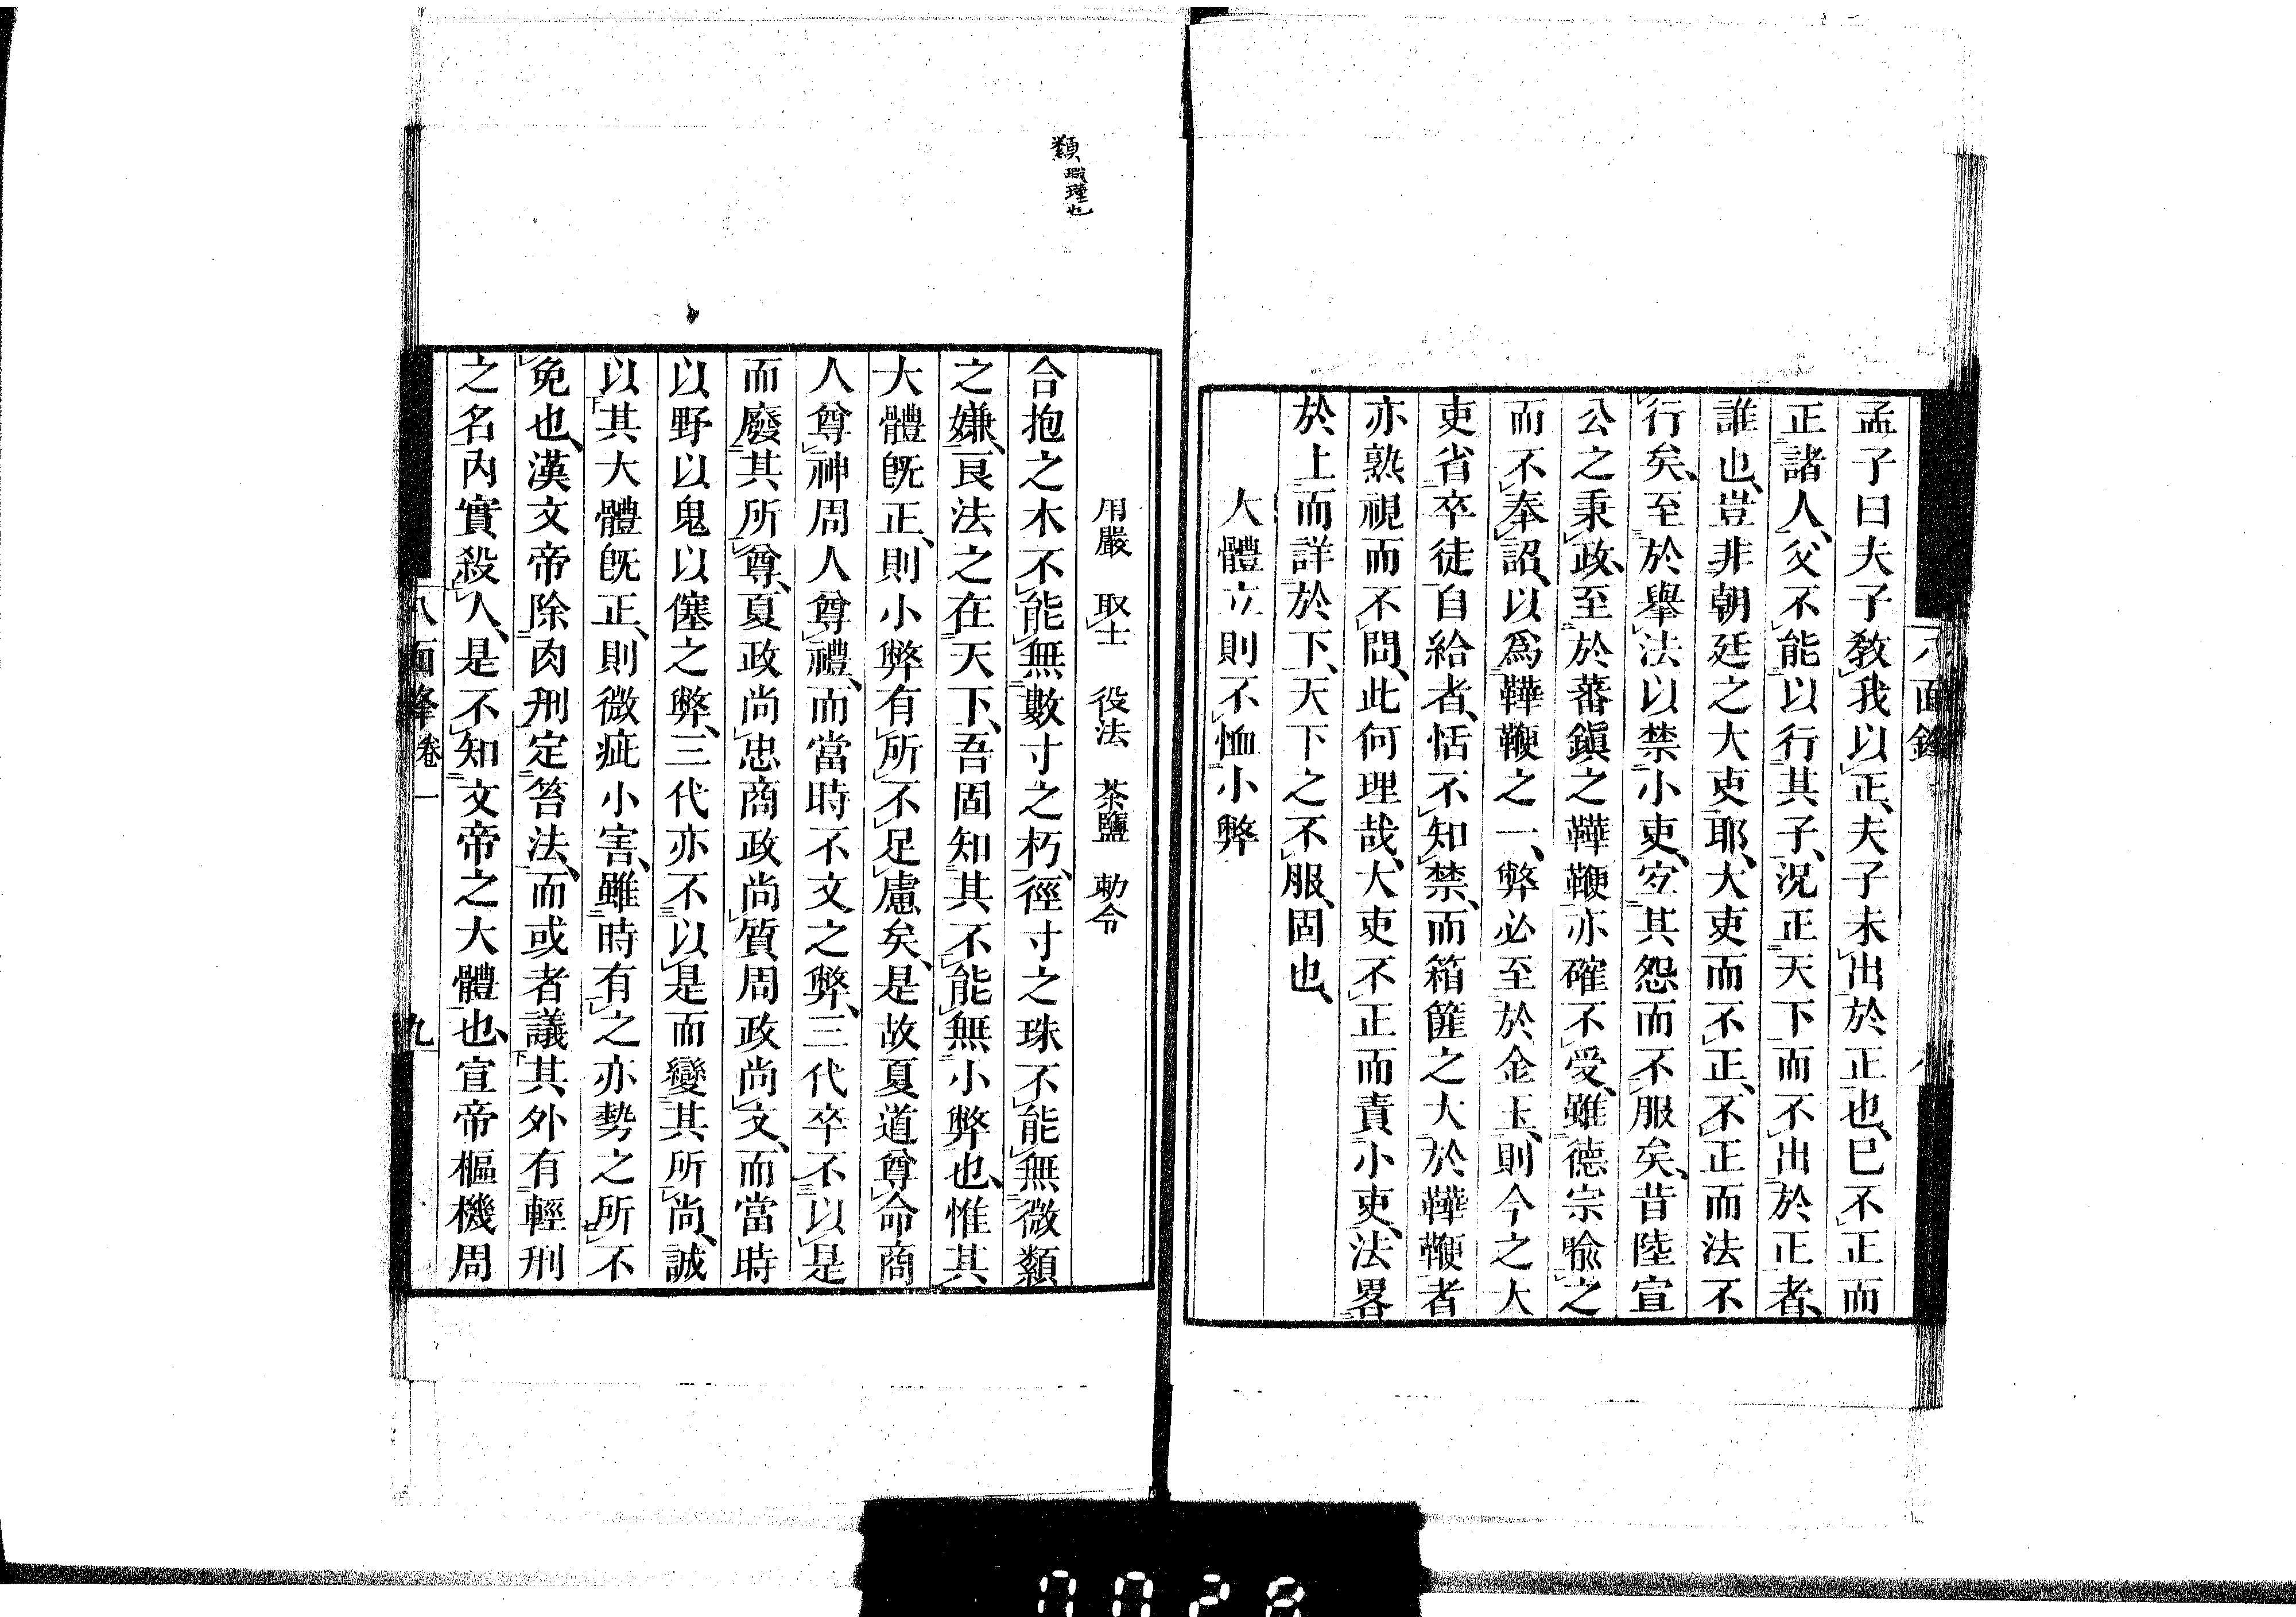 孟子曰夫子敎我以正、夫子未出於正也、已不正而
正諸人、父不能以行其子、況正天下而不出於正者、
誰也、豈非朝廷之大吏耶、大吏而不正、不正而法不
行矣、至於舉法以禁小吏、宐其怨而不服矣、昔陸宣
公之秉政、至於蕃鎭之鞾鞭亦確不受、雖德宗喩之
而不奉詔、以爲鞾鞭之一、弊必至於金玉、則今之大
吏省卒徒自給者、恬不知禁、而箱篚之大於鞾鞭者
亦熟視而不問、此何理哉、大吏不正而責小吏、法畧
於上而詳於下、天下之不服、固也、
大體立則不恤小弊
用嚴 取士 役法 茶鹽 勅令
合抱之木不能無數寸之朽、徑寸之珠不能無微纇
之嫌、良法之在天下、吾固知其不能無小弊也、惟其
大體旣正、則小弊有所不足慮矣、是故夏道尊命商
人尊神周人尊禮、而當時不文之弊、三代卒不以是
而廢其所尊、夏政尚忠商政尚質周政尚文、而當時
以野以鬼以僿之弊、三代亦不以是而變其所尚、誠
以其大體旣正、則微疵小害、雖時有之亦勢之所不
免也、漢文帝除肉刑定笞法、而或者議其外有輕刑
之名內實殺人、是不知文帝之大體也、宣帝樞機周
八面鋒 卷一 九
纇 也
0028